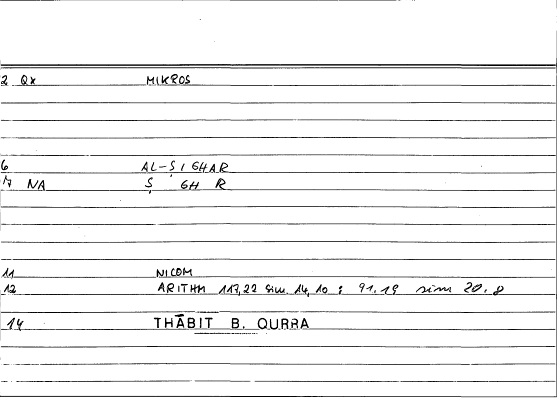 2 QX MIKROS
6 AL-ṢIGHAR
7 NA Ṣ GH R
11 NICOM
12 ARITHM 113,22 sim. 14,10 ; 91.19 sim 20.8
14 THĀBIT B. QURRA